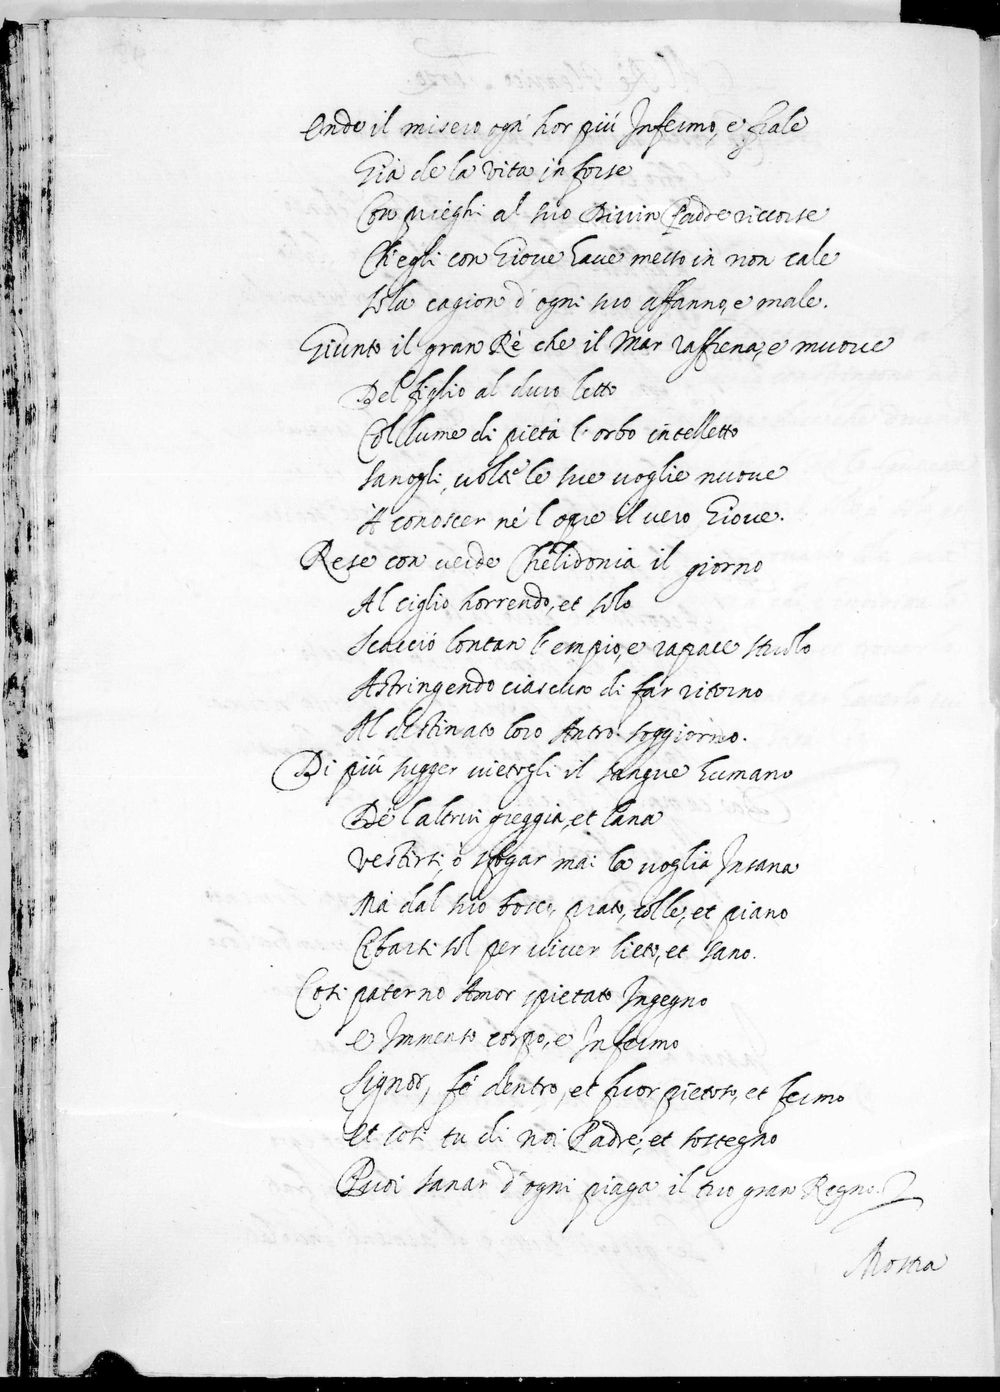 Onde il misero ogn' hor più Infermo, e frale
Già de la Vita in forse
Con prieghi al suo Divin Padre riccorse
Ch'egli con Giove have messo in non cale
Sola cagion d'ogni suo affanno, e male.
Giunto il gran Rè che il Mar raffrena, e muove
Del figlio al duro letto
Col lume di pietà l'orbo intelletto
Sanogli, volse le sue voglie nuove
A conoscer nè l'opre il vero Giove.
Rese con verde Chelidonia il giorno
Al ciglio horrendo, et solo
Scacciò lontan l'empio, e rapace stuolo
Astringendo ciascun di far ritorno
Al destinato loro Antro soggiorno.
Di più sugger vietogli il sangue humano
Dè l'altrui greggia, et lana
Vestirsi, ò sfogar mai la voglia Insana
Mà dal suo bosco, prato, colle, et piano
Cibarsi sol per viver lieto, et sano.
Così paterno Amor spietato Ingegno
e Immenso corpo, e Infermo
Signor, fè dentro, et fuor pietoso, et fermo
et così tu di noi Padre, et sostegno
Puoi sanar d'ogni piaga il tuo gran Regno.
Mostra